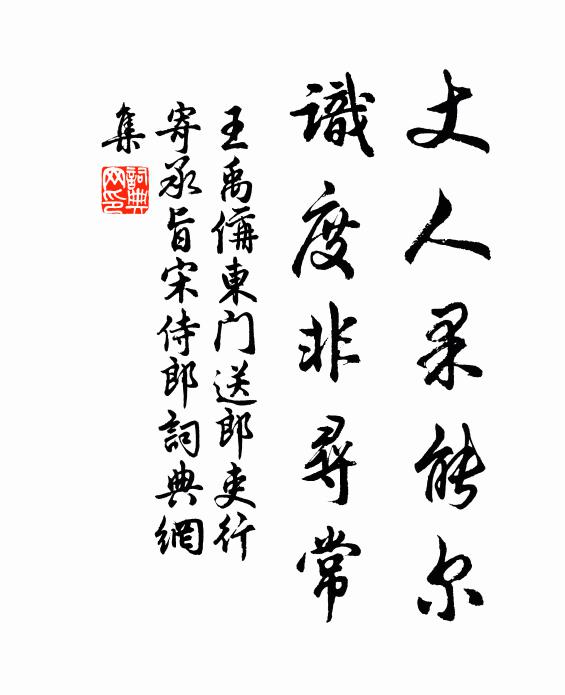 丈人果能尔
識度非尋常
王禹偁東门送郎吏行
寄承旨宋侍郎詞典網
集
詞典网印